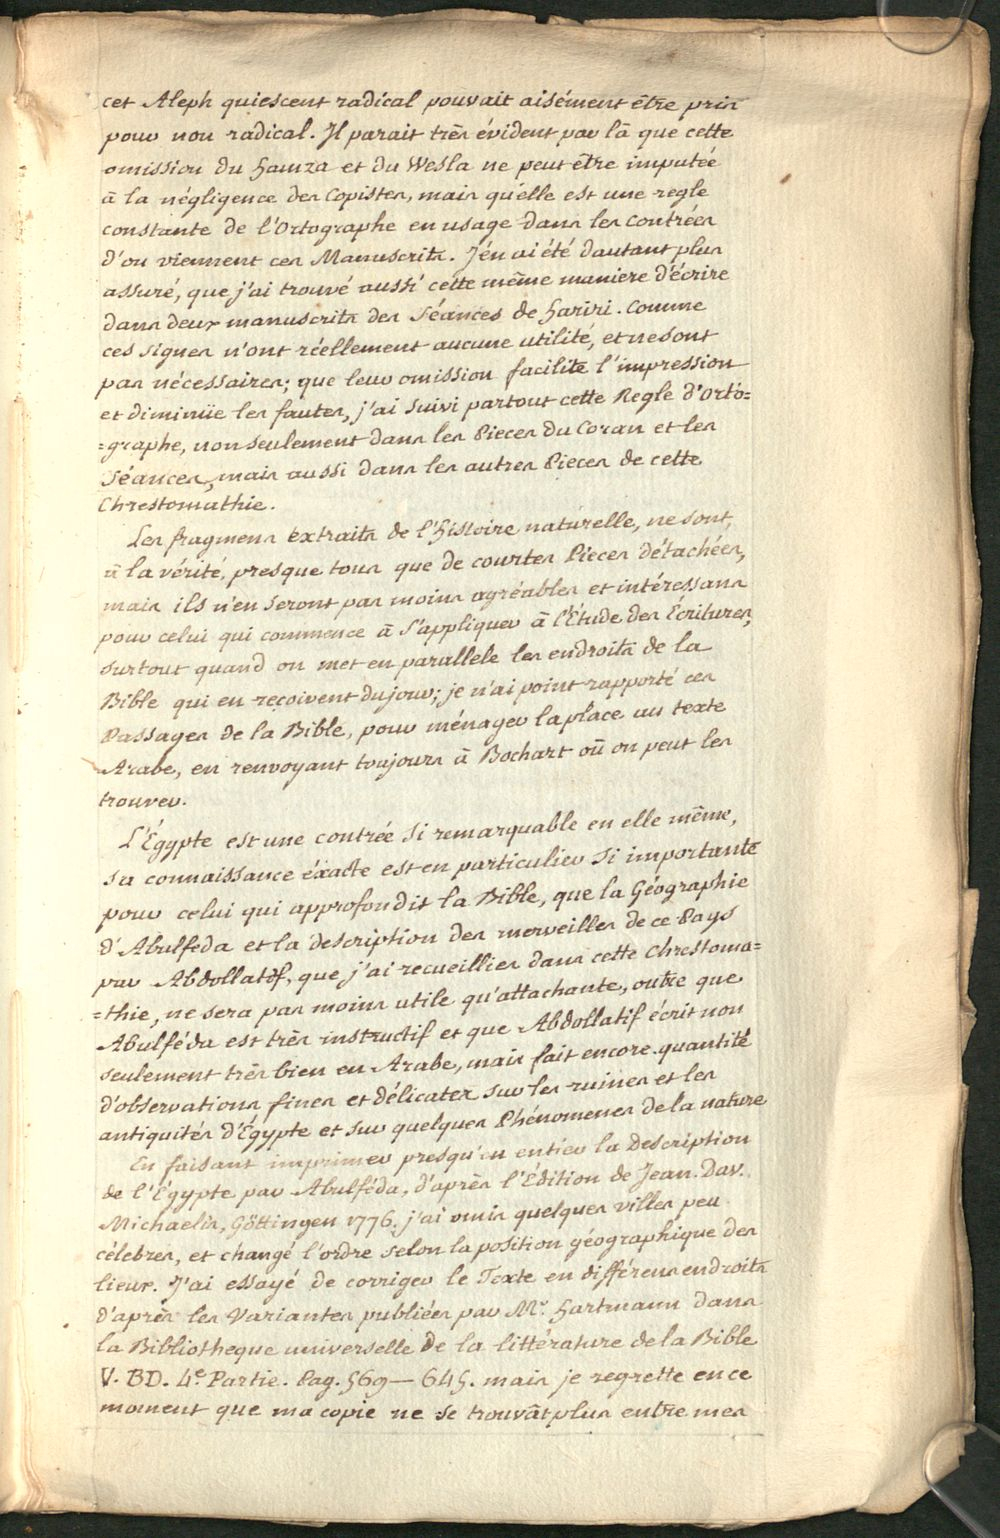 cet Aleph quiescent radical pouvait aisément être pris
pour non radical. Il parait très évident par là que cette
omission du Hamza et du Wesla ne peut être imputée
à la négligence des Copistes, mais qu'elle est une regle
constante de l'Ortographe en usage dans les contrées
d'ou viennent ces Manuscrits. J'én ai été dautant plus
assuré, que j'ai trouvé aussi cette même maniere d'écrire
dans deux manuscrits des Séances de Hariri. Comme
ces signes n'ont réellement aucune utilité, et ne sont
pas nécessaires; que leur omission facilite l'impression
et diminüe les fautes, j'ai suivi partout cette Regle d'Orto=
=graphe, non seulement dans les Pieces du Coran et les
Séances, mais aussi dans les autres Pieces de cette
Chrestomathie.
Les fragmens extraits de l'histoire naturelle, ne sont,
à la vérité, presque tous que de courtes Pieces détachées,
mais ils n'en seront pas moins agréables et intéressans
pour celui qui commence à s'appliquer à l'Étude des Écritures,
surtout quand on met en parallele les endroits de la
Bible qui en reçoivent du jour; je n'ai point rapporté ces
Passages de la Bible, pour ménager la place au texte
Arabe, en renvoyant toujours à Bochart où on peut les
trouver.
L'Égypte est une contrée si remarquable en elle même,
sa connaissance éxacte est en particulier si importante
pour celui qui approfondit la Bible, que la Géographie
d'Abulfeda et la description des merveilles de ce Pays
par Abdollatif, que j'ai recueillies dans cette Chrestoma=
=thie, ne sera pas moins utile qu'attachante, outre que
Abulféda est très instructif et que Abdollatif écrit non
seulement très bien en Arabe, mais fait encore quantité
d'observations fines et délicates sur les ruines et les
antiquités d'Égypte et sur quelques Phénomenes de la nature
En faisant imprimer presqu'en entier la Description
de l'Égypte par Abulféda, d'après l'Édition de Jean. Dav.
Michaelis, Göttingen 1776. j'ai omis quelques villes peu
célebres, et changé l'ordre selon la position géographique des
lieux. J'ai essayé de corriger le Texte en différens endroits
d'après les Variantes publiées par Mr. Hartmann dans
la Bibliotheque universelle de la littérature de la Bible
V. BD. 4e Partie. Pag. 569 — 645. mais je regrette en ce
moment que ma copie ne se trouvât plus entre mes